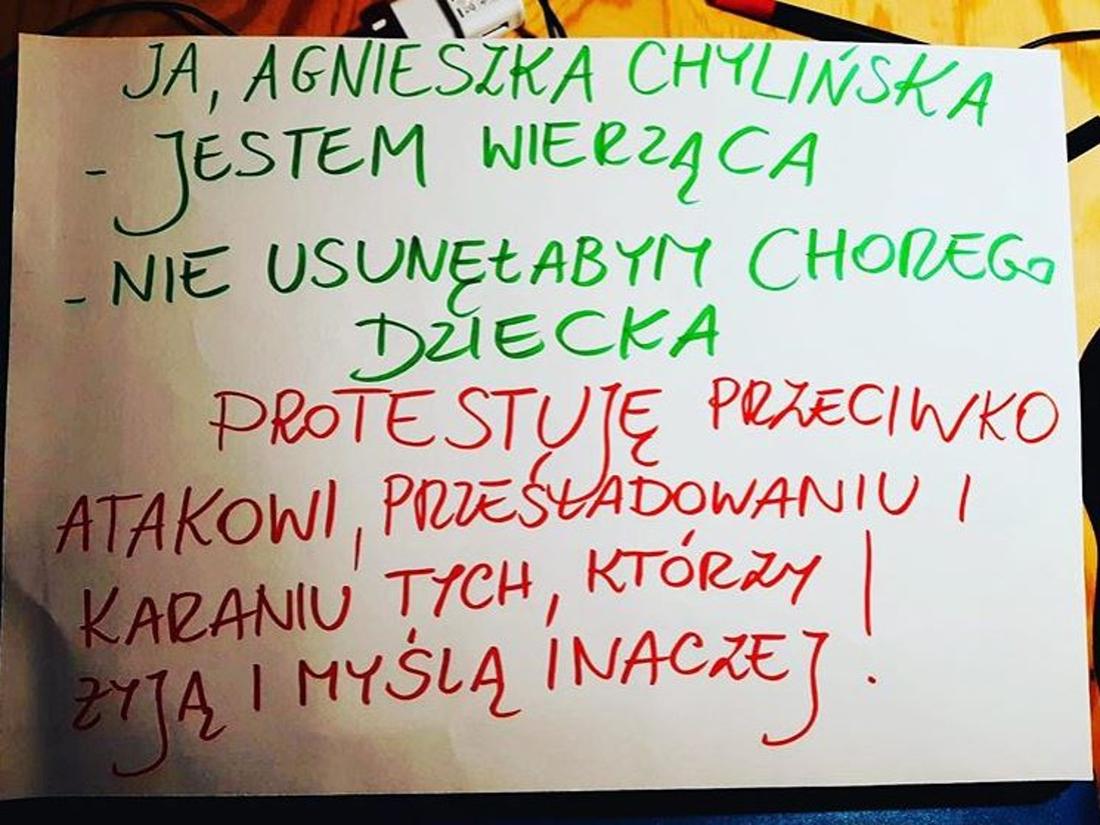 JA, AGNIESZKA CHYLIŃSKA
- JESTEM WIERZĄCA
- NIE USUNĘŁABYM CHOREGO
DZIECKA
PROTESTUJĘ PRZECIWKO
ATAKOWI, PRZEŚŁADOWANIU I
KARANIU TYCH, KTÓRZY
ŻYJĄ I MYŚLĄ INACZEJ!